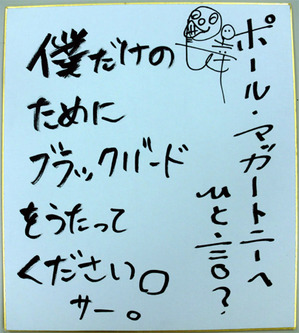 ポール・マガートニーへ
ひと言?
僕だけの
ために
ブラックバード
をうたって
ください。
サー。